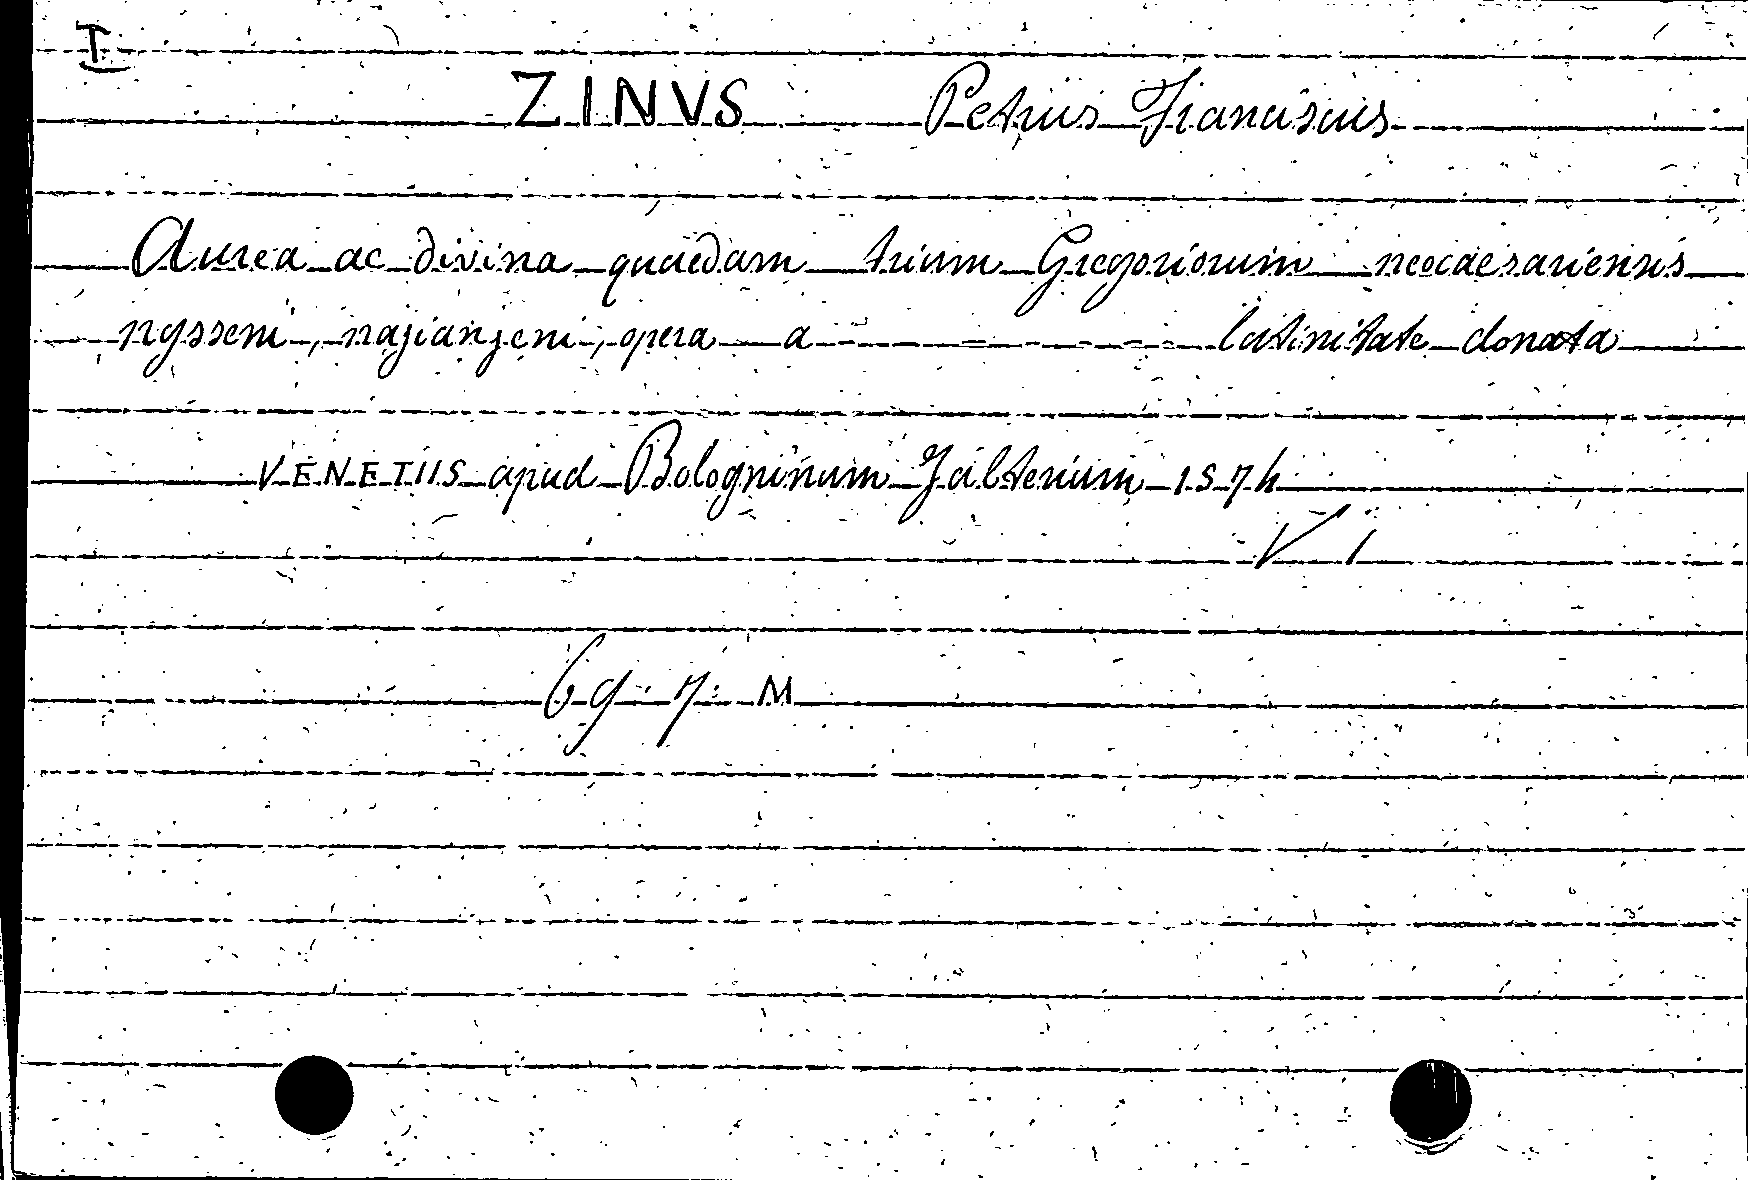 I
ZINVS Petrus Franciscus
Aurea ac divina quaedam trium Gregoriorum neocaesariensis
nysseni, nazianzeni, opera a ---------- latinitate donata
VENETIIS apud Bologninum Zalterium 1574
V 1
69 7 M